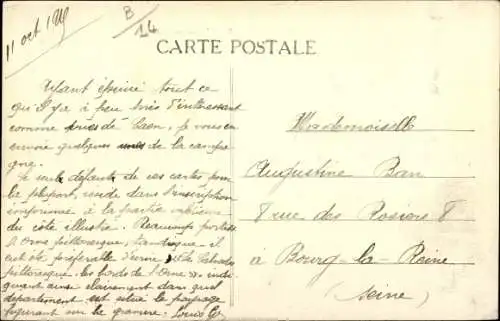 11 oct 19
B
14
CARTE POSTALE
Ayant épuisé tout ce
qu'il y a à peu près d'intéressant
comme vues de Caen, je vous en
envoie quelques unes de la campa-
gne.
Le seul défaut de ces cartes, pour
la plupart, réside dans l'inscription
à la partie
du côté illustré. Beaucoup portent
"l'Orne pittoresque", tandis que il
eut été préférable d'écrire "Le Calvados
pittoresque. les bords de l'Orne" indi-
quant ainsi clairement dans quel
département est situé le paysage
figurant sur la gravure. Louis
Mademoiselle
Augustine Ban
8 rue des Rosiers 8
à Bourg-la-Reine
(Seine)